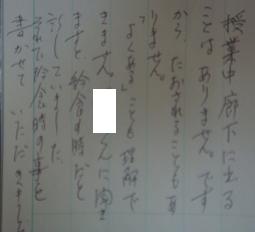 授業中廊下に出る
ことはありません。です
から、たおされることもあ
りません。
「よくある」ことも理解で
きません。くんに聞き
ますと給食の時だと
言っていました。
それで給食時の事を
書かせていただきまし